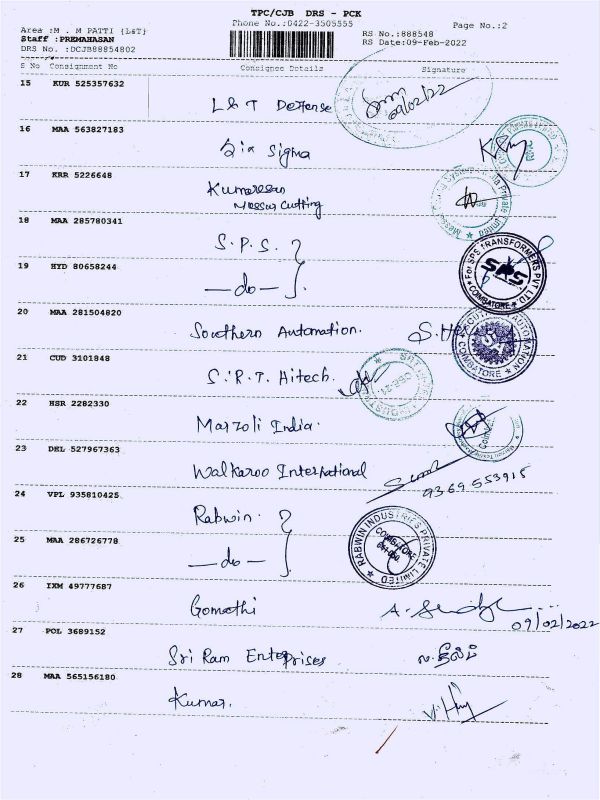 TPC/CJB DRS - PCK
Phone No.:0422-3505555
Page No.:2
Area :M . M PATTI {L&T}
Staff :PREMAHASAN
DRS No. :DCJB88854802
RS No.:888548
RS Date:09-Feb-2022
S No Consignment No Consignee Details Signature
15 KUR 525357632
L & T Defense
09/02/22
16 MAA 563827183
Six Sigma
17 KRR 5226648
Kumaresan
Messar Cutting
18 MAA 285780341
S. P. S.
For SPS TRANSFORMERS PVT LTD
SPS
COIMBATORE
19 HYD 80658244
— do —
20 MAA 281504820
Southern Automation.
AUTOMATION
COIMBATORE
21 CUD 3101848
S. R. T. Hitech.
22 HSR 2282330
Marzoli India.
23 DEL 527967363
Walkaroo International
9369553915
24 VPL 935810425
Rabwin.
RABWIN INDUSTRIES PRIVATE LIMITED
COIMBATORE
25 MAA 286726778
— do —
26 IXM 49777687
Gomathi
09/02/2022
27 POL 3689152
Sri Ram Enterprises
28 MAA 565156180
Kumar.